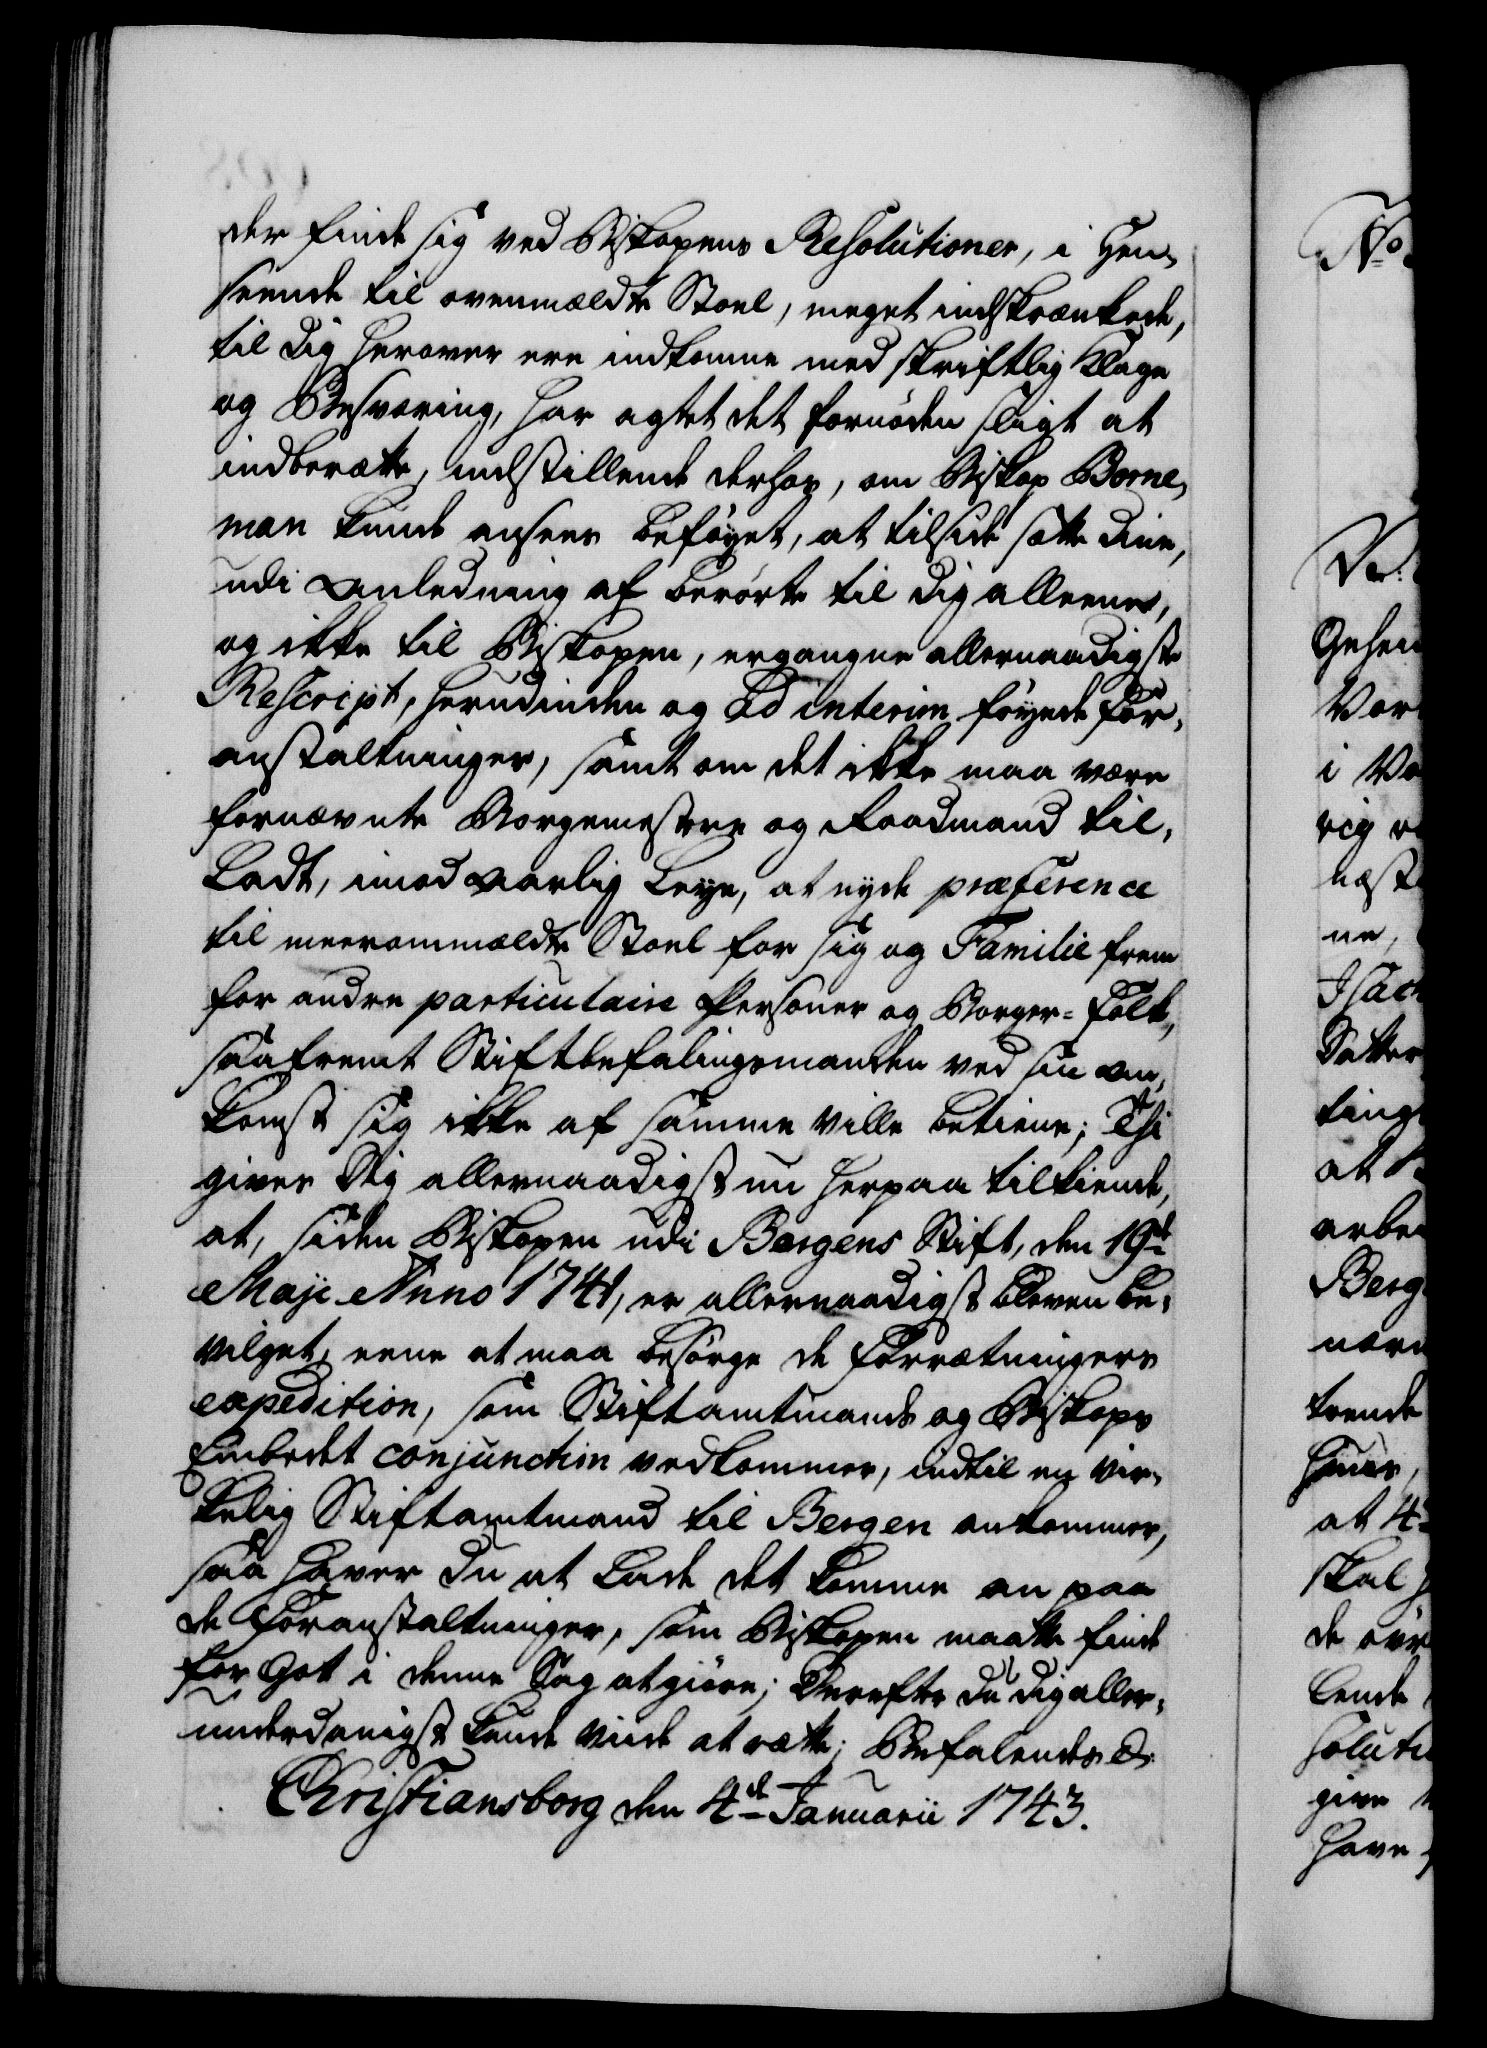 der finde sig ved Biskopens Resolutioner, i Hen-
seende til ovenmældte Stoel, meget indskrænkede,
til dig herover ere indkomne med skriftlig Klage
og Besværing, har agtet det fornøden sligt at
indberætte, indstillende derhos, om Biskop Borne-
man kunde ansees beføyet, at tilside sætte dine,
udi Anledning af berørte til dig alleene,
og ikke til Biskopen, ergangne allernaadigste
Rescript, herudinden og ad interim føyede For-
anstaltninger, samt om det ikke maa være
fornævnte Borgemestere og Raadmand til-
ladt, imod aarlig Leye, at nyde præference
til meerommældte Stoel for sig og Familie frem
for andre particulaire Personer og Borger-Folk,
saafremt Stiftbefalingsmanden ved sin An-
komst sig ikke af samme ville betiene; Thi
gives Dig allernaadigst nu herpaa tilkiende,
at, siden Biskopen udi Bergens Stift, den 19de
Maji Anno 1741, er allernaadigst bleven be-
vilget, eene at maa besørge de Forrætningers
expedition, som Stiftamtmands og Biskops
Embedet conjunctim vedkommer, indtil en vir-
kelig Stiftamtmand til Bergen ankommer,
saa haver du at lade det komme an paa
de Foranstaltninger, som Biskopen maatte finde
for Got i denne Sag at giøre; Derefter du dig aller-
underdanigst kand vide at rætte; Befalendes &c.
Christiansborg den 4de Januarii 1743.
No
i Vo
Berg
at 4
skal